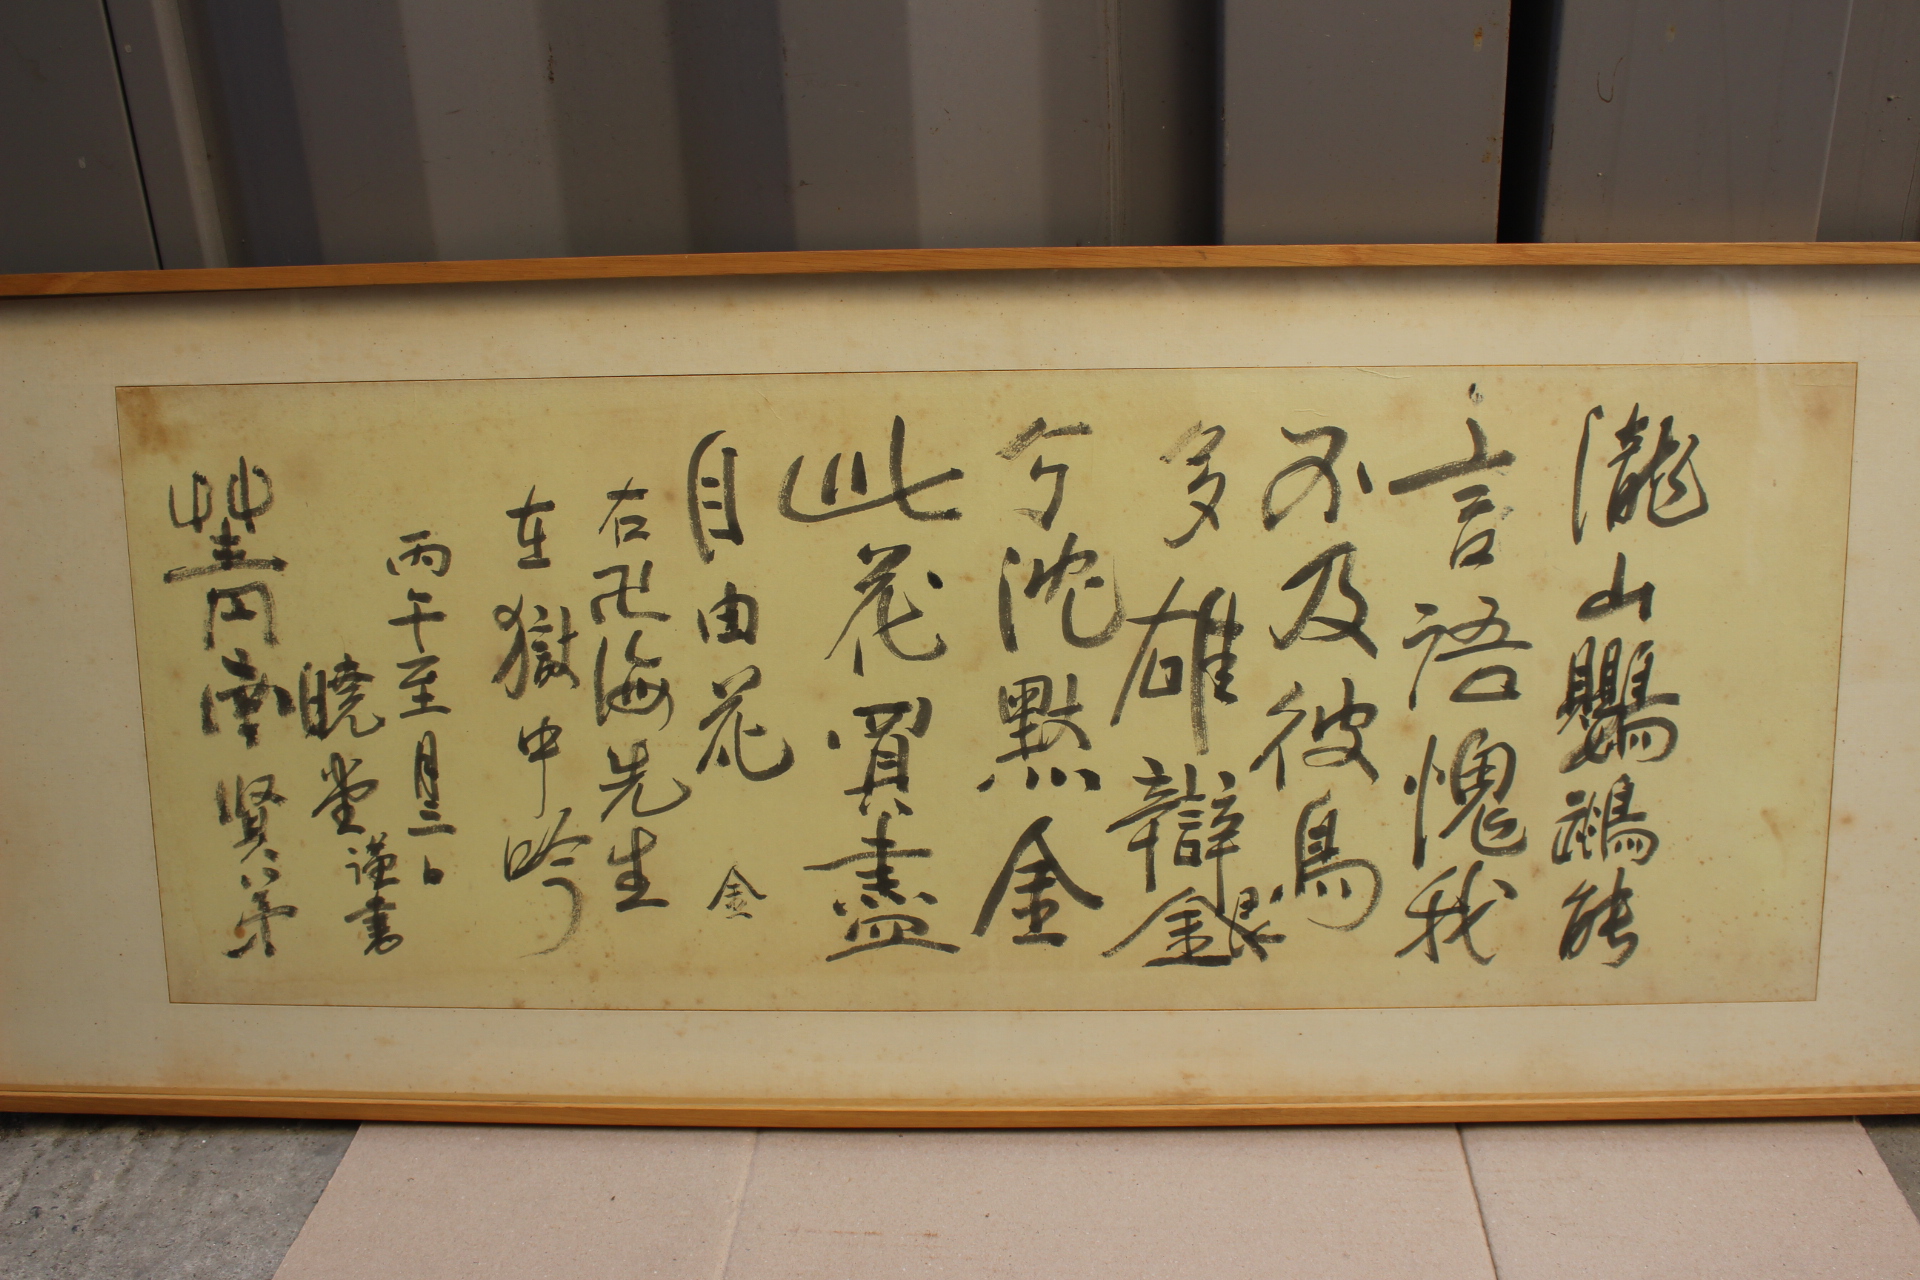 瀧山鸚鵡能
言語愧我
不及彼鳥
多雄辯銀
兮沈默金
此花買盡
自由花 金
右卍海先生
在獄中吟
丙午至月三日
曉堂謹書
賢弟